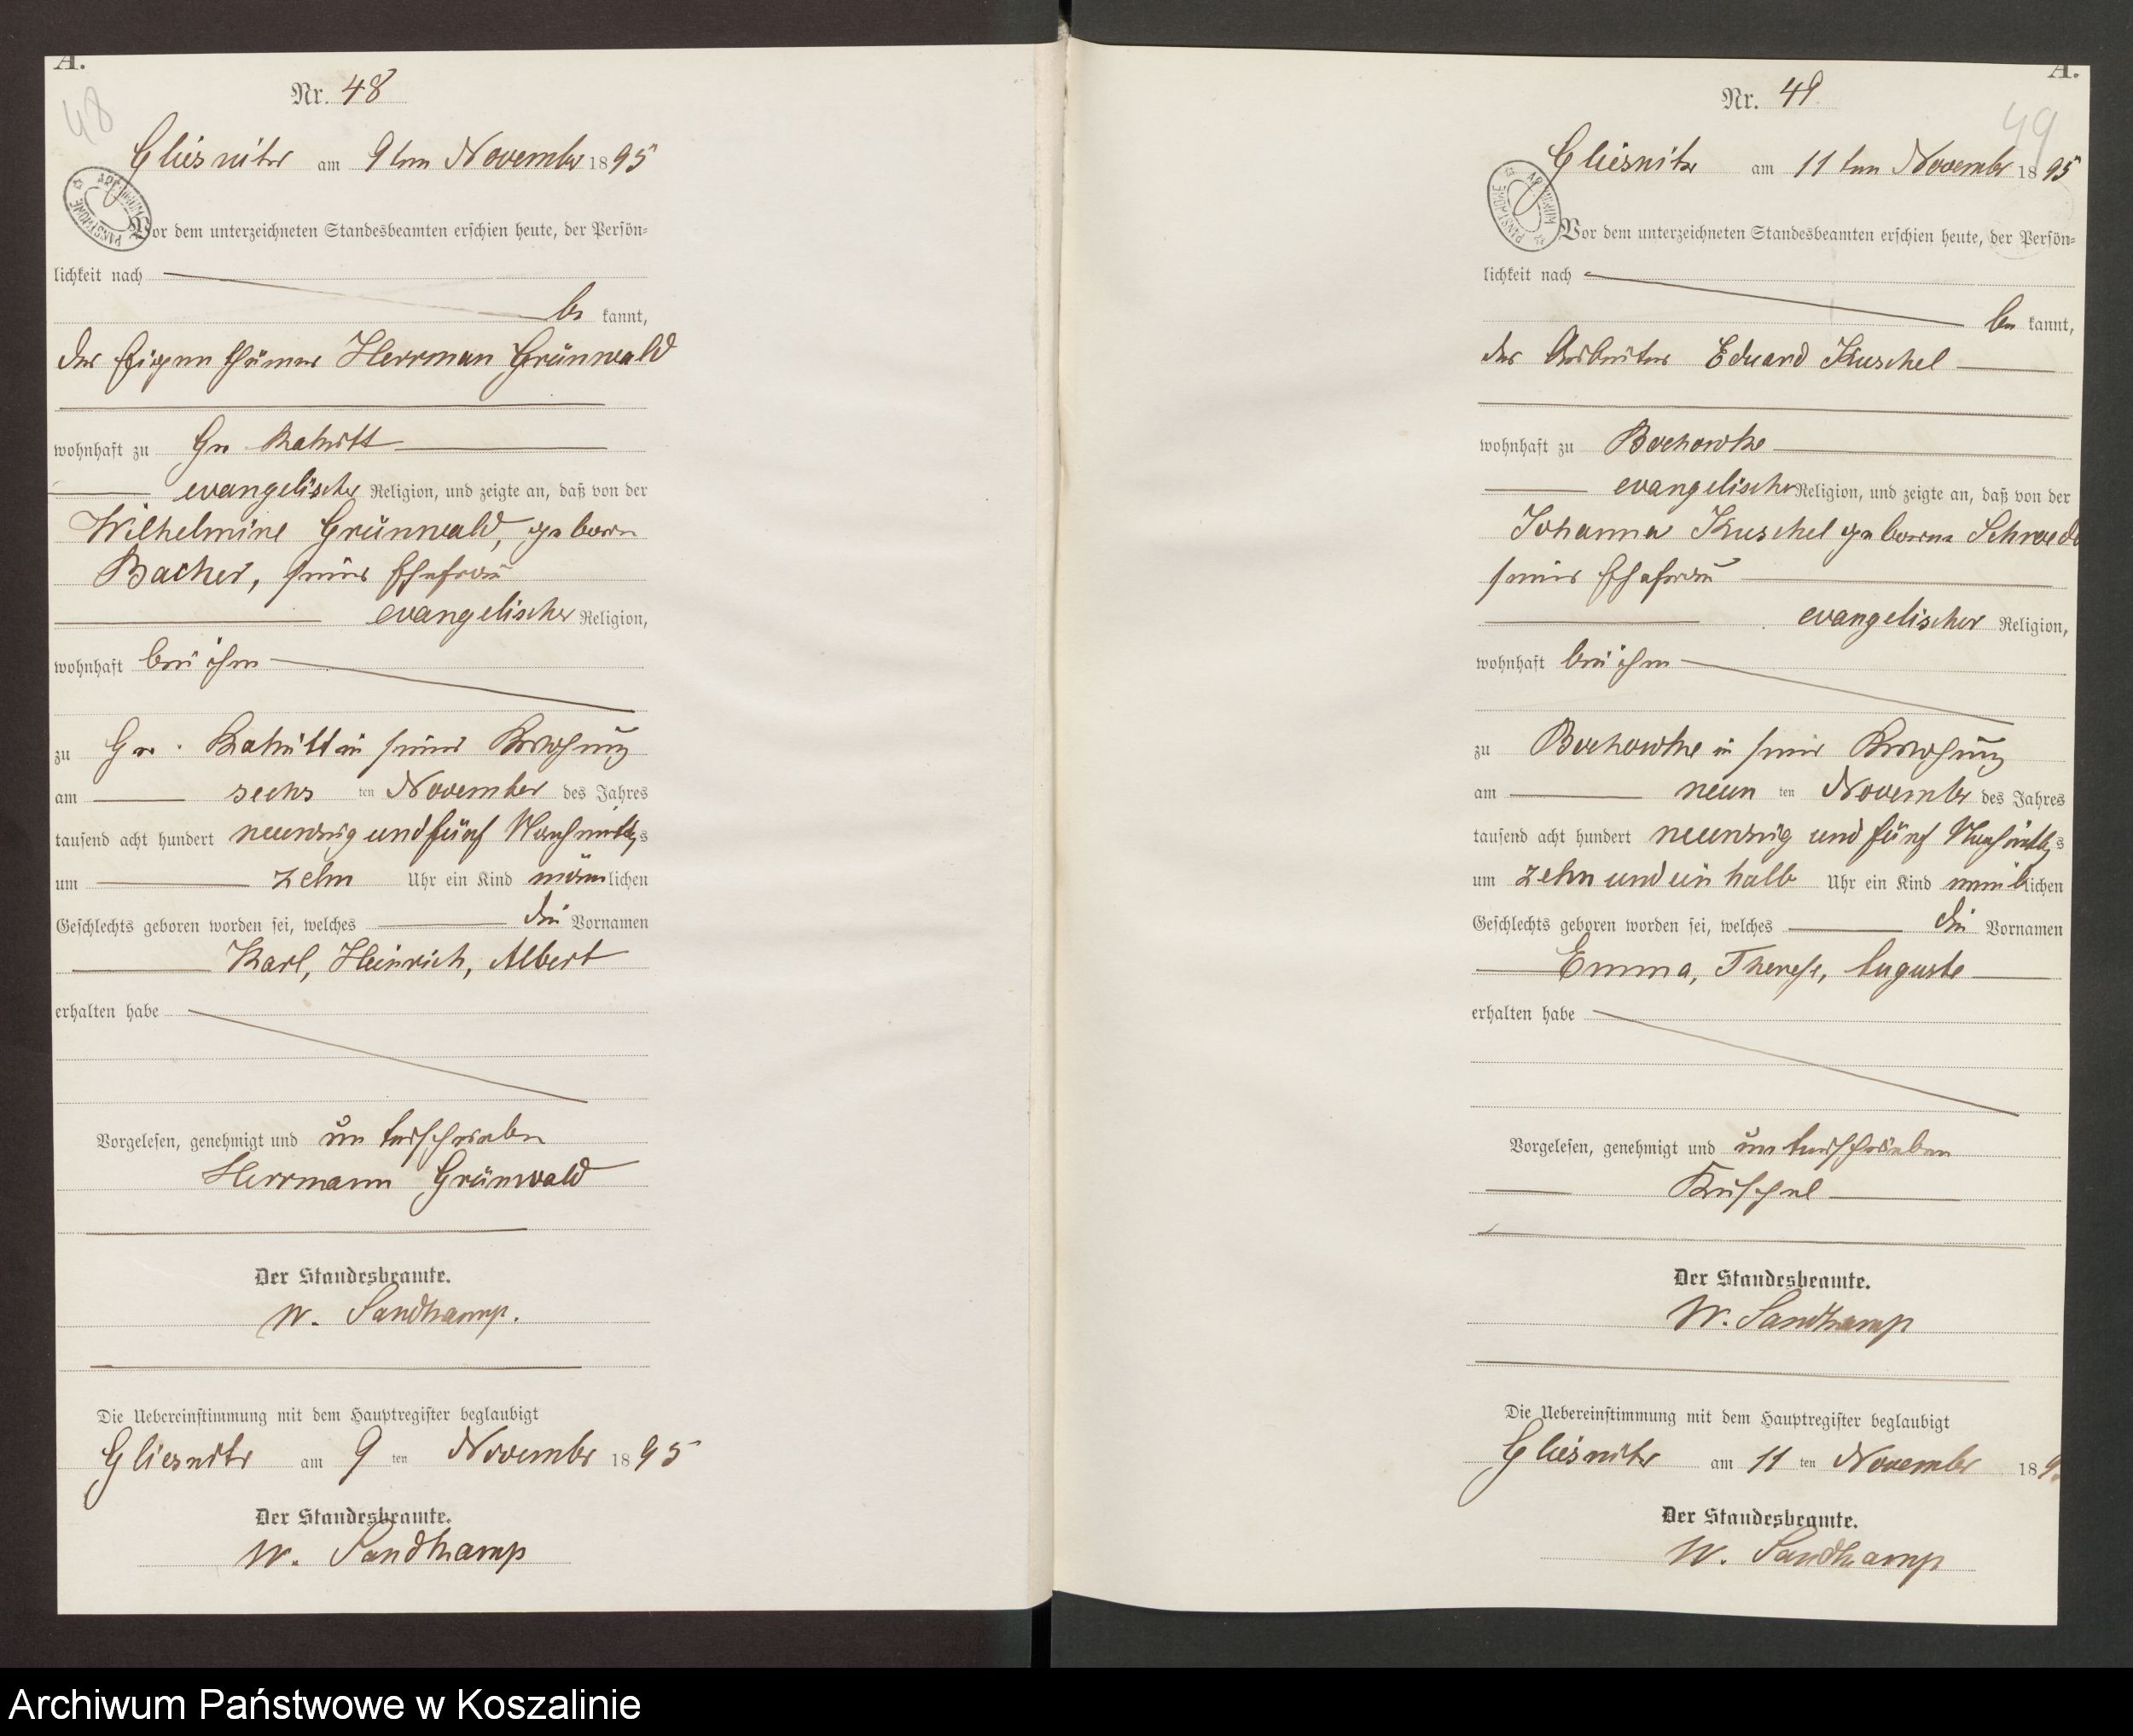 A.
Nr. 48
48
Gliesnitz am 9ten November 1895
ARCHIWUM PAŃSTWOWE
Vor dem unterzeichneten Standesbeamten erschien heute, der Persön=
lichkeit nach
be kannt,
der Eigenthümer Herrman Grünwald
wohnhaft zu Gr. Rakitt
evangelischer Religion, und zeigte an, daß von der
Wilhelmine Grünwald, geborn
Bacher, seiner Ehefrau
evangelischer Religion,
wohnhaft bei ihm
zu Gr. Rakitt in seiner Wohnung
am sechs ten November des Jahres
tausend acht hundert neunzig und fünf Nachmittags
um zehn Uhr ein Kind männlichen
Geschlechts geboren worden sei, welches die Vornamen
Karl, Heinrich, Albert
erhalten habe
Vorgelesen, genehmigt und unterschrieben
Herrmann Grünwald
Der Standesbeamte.
W. Sandkamp.
Die Uebereinstimmung mit dem Hauptregister beglaubigt
Gliesnitz am 9 ten November 1895
Der Standesbeamte.
W. Sandkamp
A.
Nr. 49
49
Gliesnitz am 11ten November 1895
ARCHIWUM PAŃSTWOWE
Vor dem unterzeichneten Standesbeamten erschien heute, der Persön=
lichkeit nach
be kannt,
der Arbeiter Eduard Kuschel
wohnhaft zu Bochowke
evangelischer Religion, und zeigte an, daß von der
Johanna Kuschel geborne
seiner Ehefrau
evangelischer Religion,
wohnhaft bei ihm
zu Bochowke in seiner Wohnung
am neun ten November des Jahres
tausend acht hundert neunzig und fünf Nachmittags
um zehn und ein halb Uhr ein Kind weiblichen
Geschlechts geboren worden sei, welches die Vornamen
Emma, Therese, Auguste
erhalten habe
Vorgelesen, genehmigt und unterschrieben
Kuschel
Der Standesbeamte.
W. Sandkamp
Die Uebereinstimmung mit dem Hauptregister beglaubigt
Gliesnitz am 11 ten November 189
Der Standesbeamte.
W. Sandkamp
Archiwum Państwowe w Koszalinie